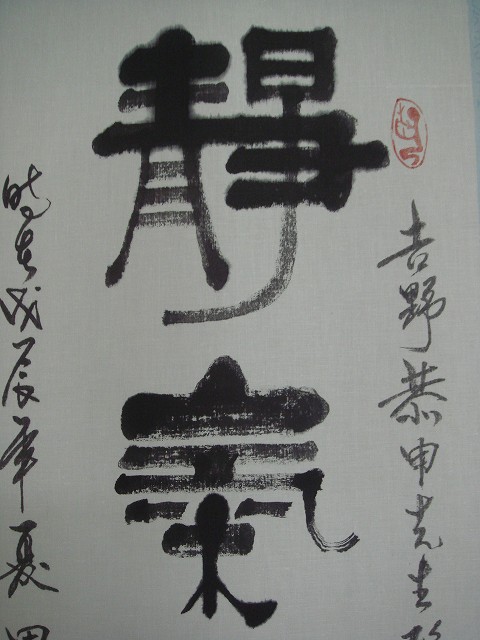 吉野恭申先生
静氣
時在戊辰年夏